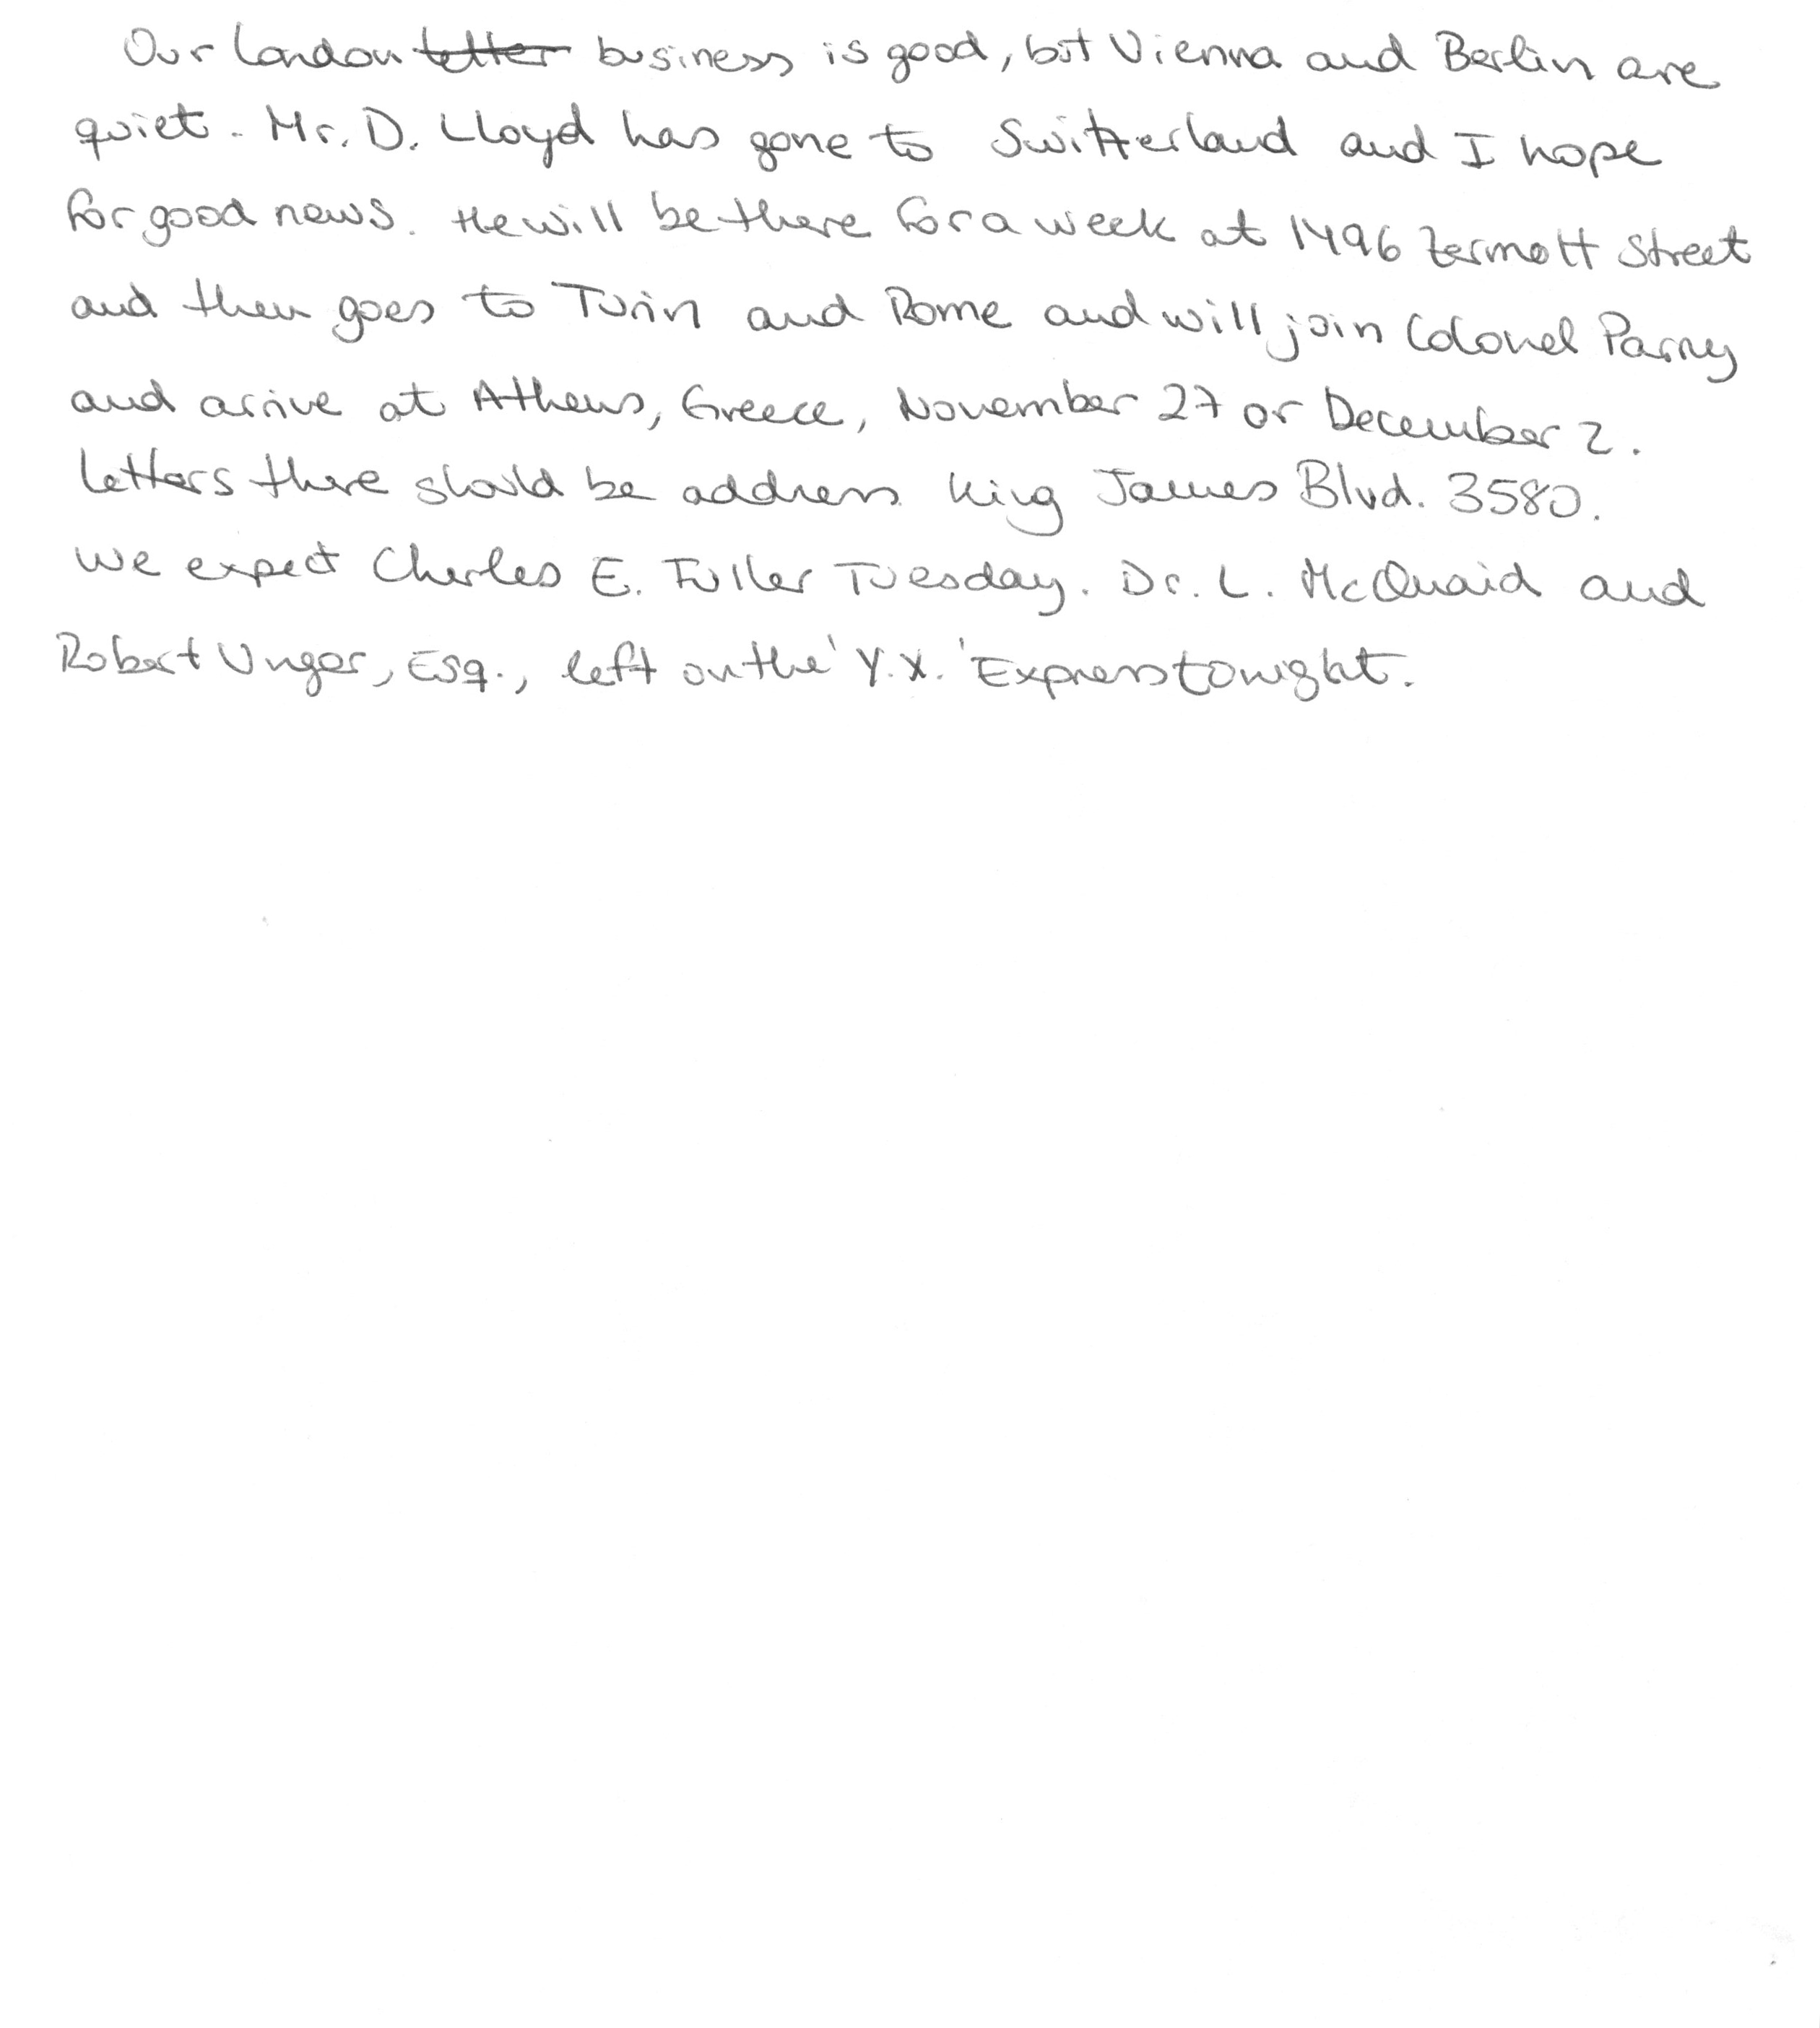 Our London letter business is good, but Vienna and Berlin are
quiet. Mr. D. Lloyd has gone to Switzerland and I hope
for good news. He will be there for a week at 1496 Zermott Street
and then goes to Turin and Rome and will join Colonel Parry
and arrive at Athens, Greece, November 27 or December 2.
Letters there should be address King James Blvd. 3580.
We expect Charles E. Fuller Tuesday. Dr. L. McQuaid and
Robert Unger, Esq., left on the 'Y.X.' Express tonight.